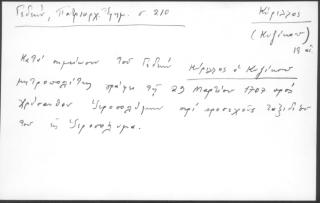 Γεδεών, Πατριαρχ. Ἐφημ. σ 210
Κύριλλος
(Κυζίκου)
18 αἰ.
Κατά σημείωσιν τοῦ Γεδεών Κύριλλος ὁ Κυζίκου
μητροπολίτης γράφει τῇ 29 Μαρτίου 1707 πρός
Χρύσανθον Ἱεροσολύμων περί προσεχοῦς ταξιδίου
του εἰς Ἱεροσόλυμα.